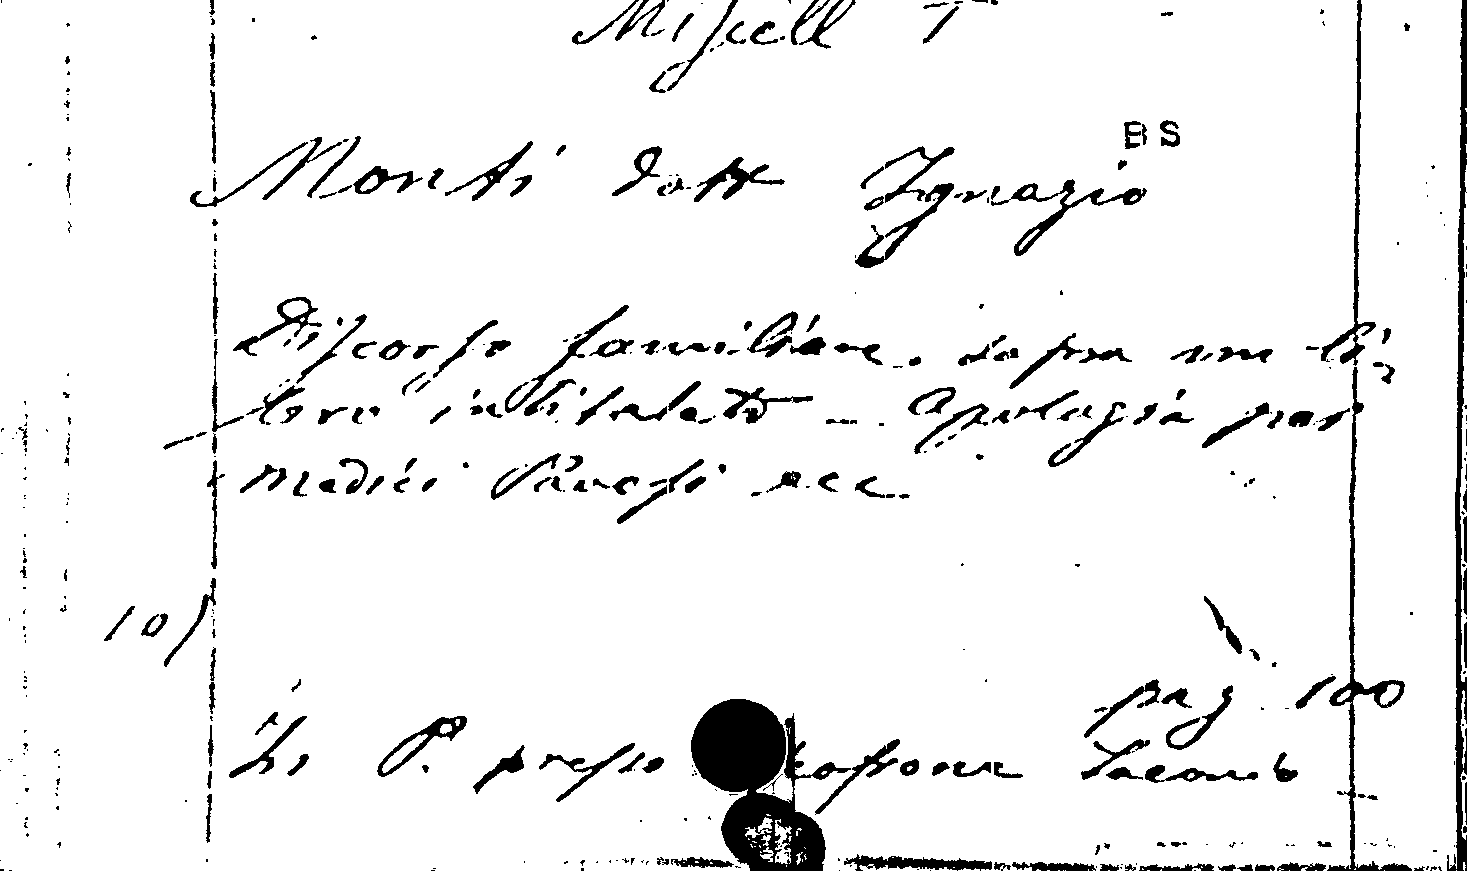 Miscell T
BS
Monti dott Ignazio
Discorso familiare. sopra un li-
bro intitolato - Apologia per
medici Pavesi ecc..
10)
pag 100
In P. presso Giacomo